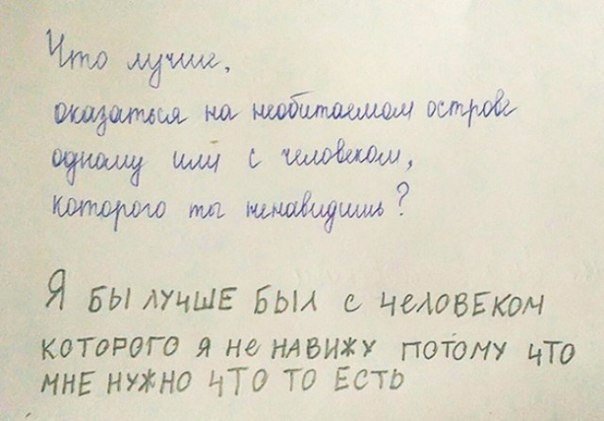 Что лучше,
оказаться на необитаемом острове
одному или с человеком,
которого ты ненавидишь?
Я БЫ ЛУЧШЕ БЫЛ С ЧЕЛОВЕКОМ
КОТОРОГО Я НЕ НАВИЖУ ПОТОМУ ЧТО
МНЕ НУЖНО ЧТО ТО ЕСТЬ